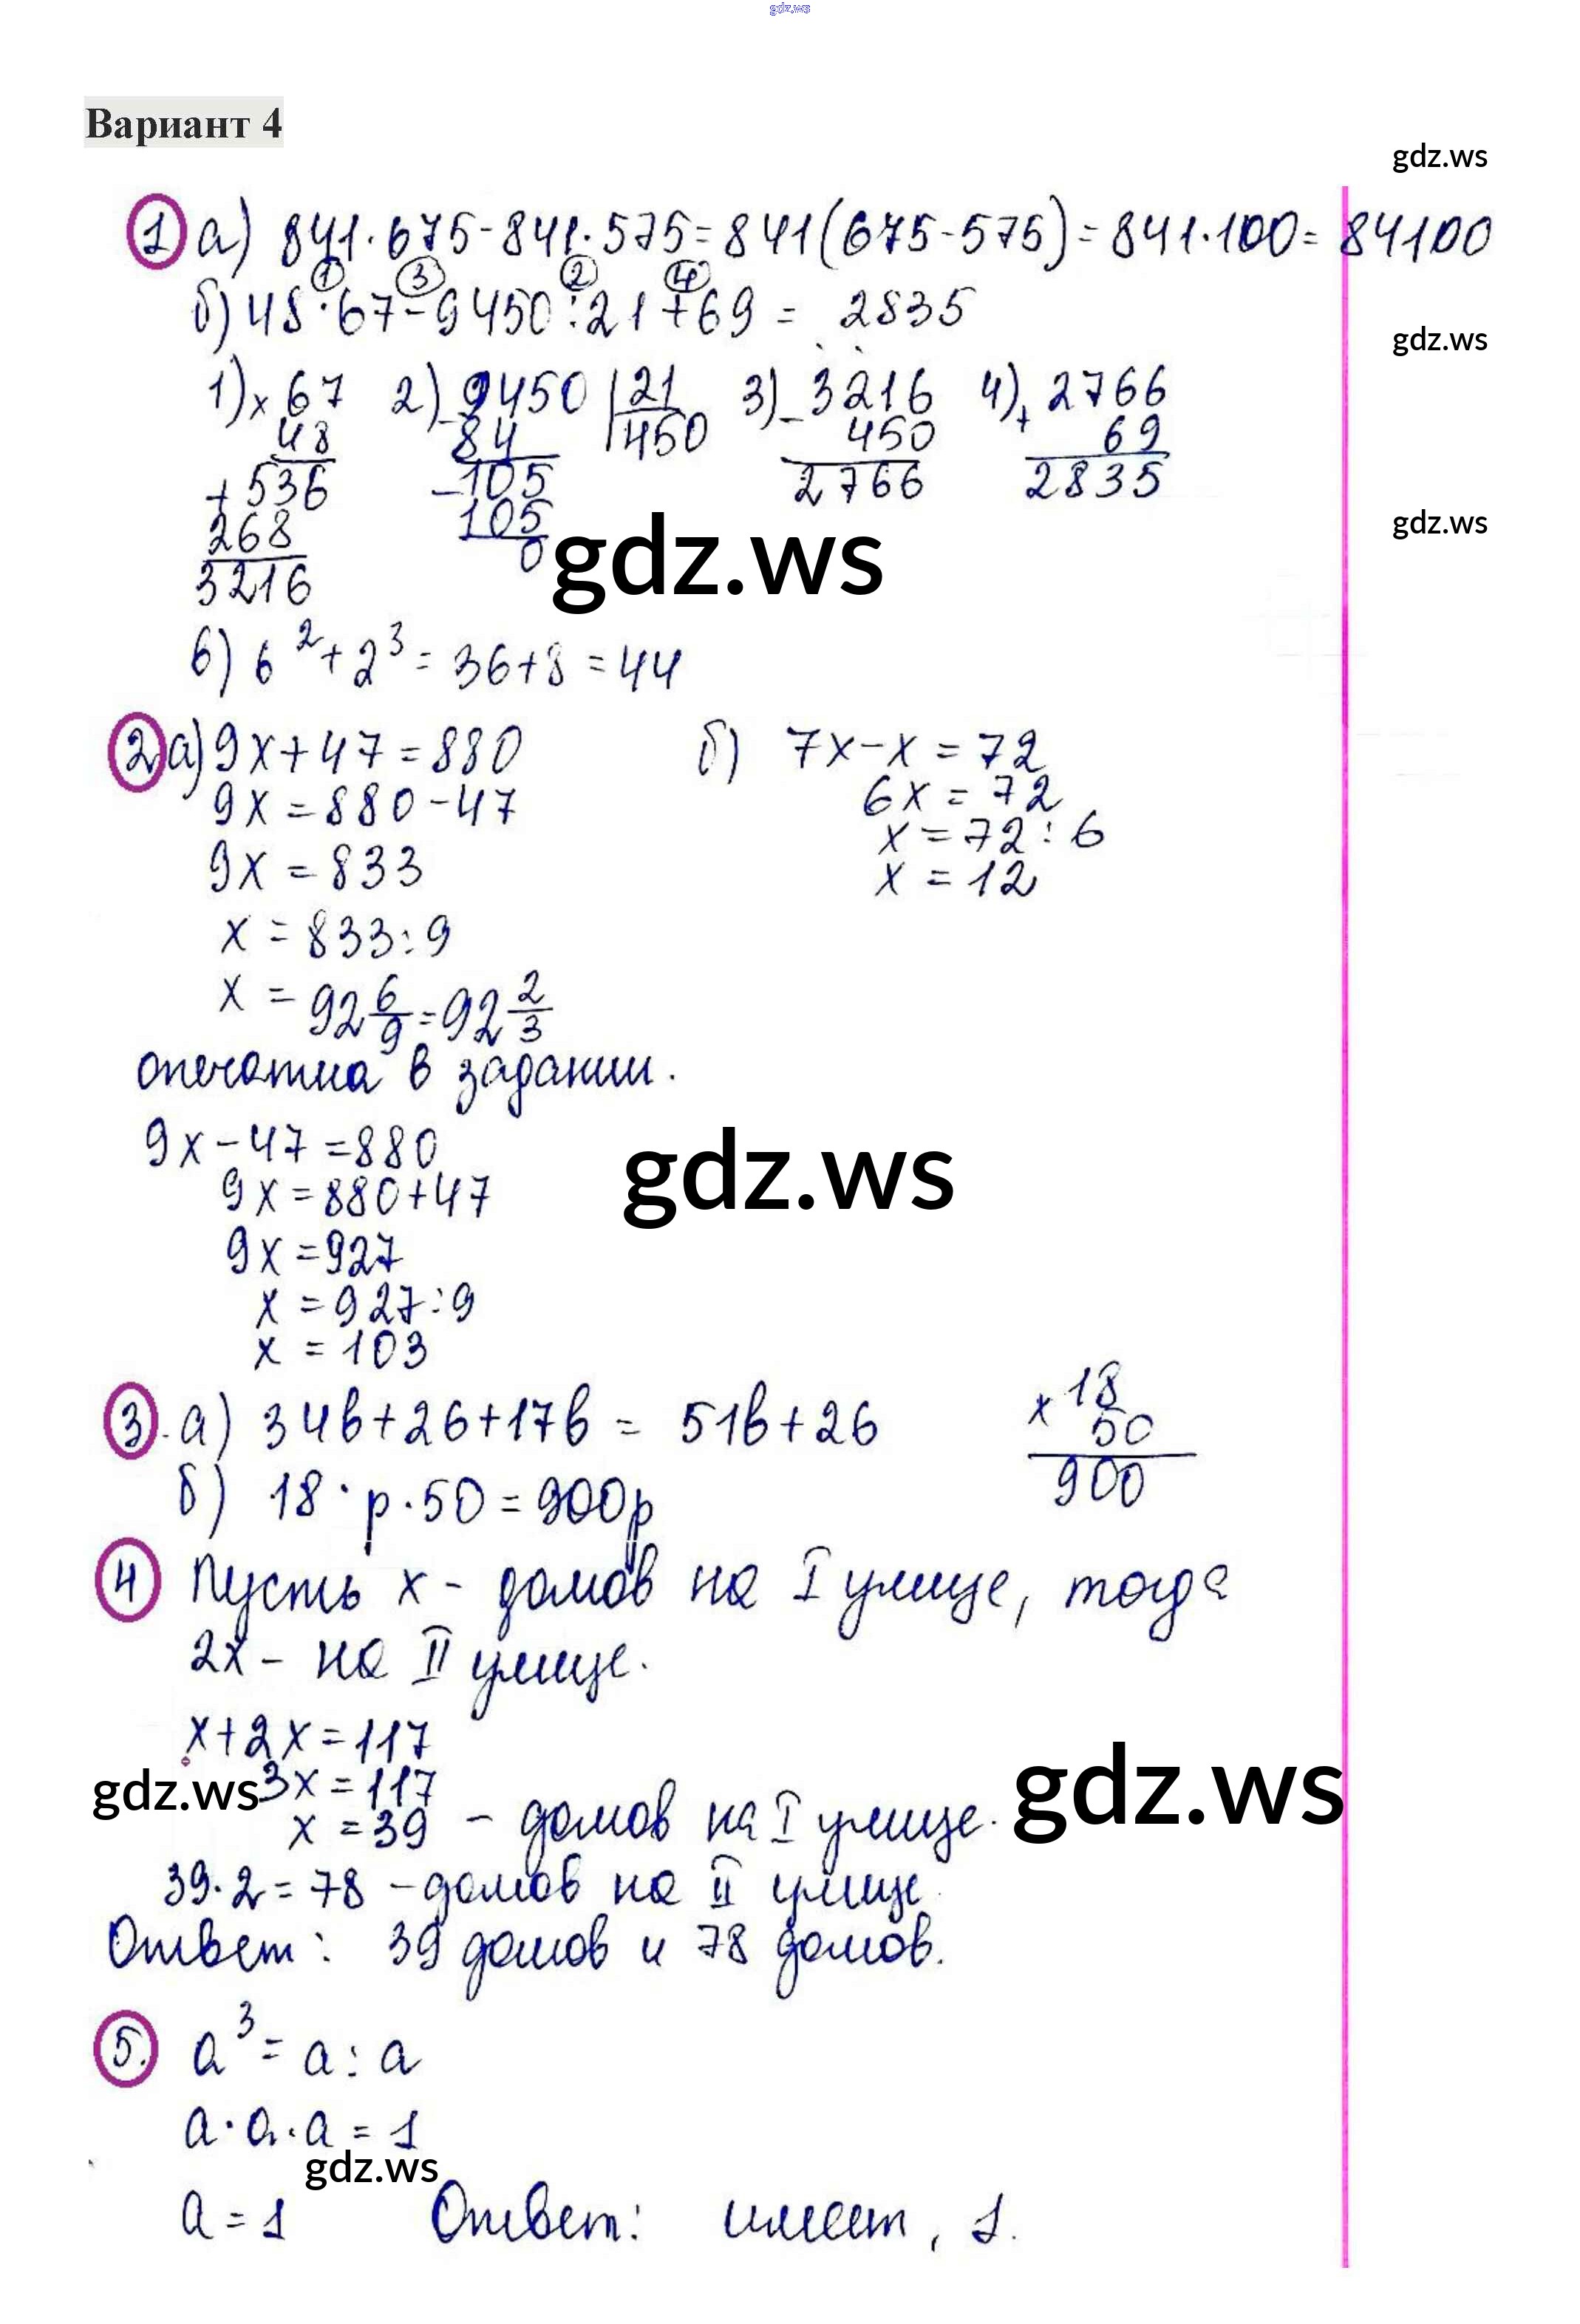 gdz.ws
Вариант 4
gdz.ws
1 а) 841·675-841·575=841(675-575)=841·100=84100
1 3 2 4
б) 48·67-9450:21+69 = 2835
gdz.ws
1) × 67 2) - 9450 | 21 3) - 3216 4) + 2766
48 84 450 450 69
+ 536 - 105 2766 2835
268 105
3216 0
gdz.ws
gdz.ws
в) 6² + 2³ = 36+8 = 44
2 а) 9x+47=880 б) 7x-x=72
9x=880-47 6x=72
9x=833 x=72:6
x=833:9 x=12
x = 92 6/9 = 92 2/3
опечатка в задании.
9x-47=880
gdz.ws
9x=880+47
9x=927
x=927:9
x=103
3. а) 34b+26+17b = 51b+26 × 18
50
900
б) 18·p·50=900p
4 Пусть x - домов на I улице, тогда
2x - на II улице.
x+2x=117
gdz.ws 3x=117 gdz.ws
x=39 - домов на I улице.
39·2=78 - домов на II улице
Ответ: 39 домов и 78 домов.
5. a³ = a:a
a·a·a=1
gdz.ws
a=1 Ответ: имеет, 1.